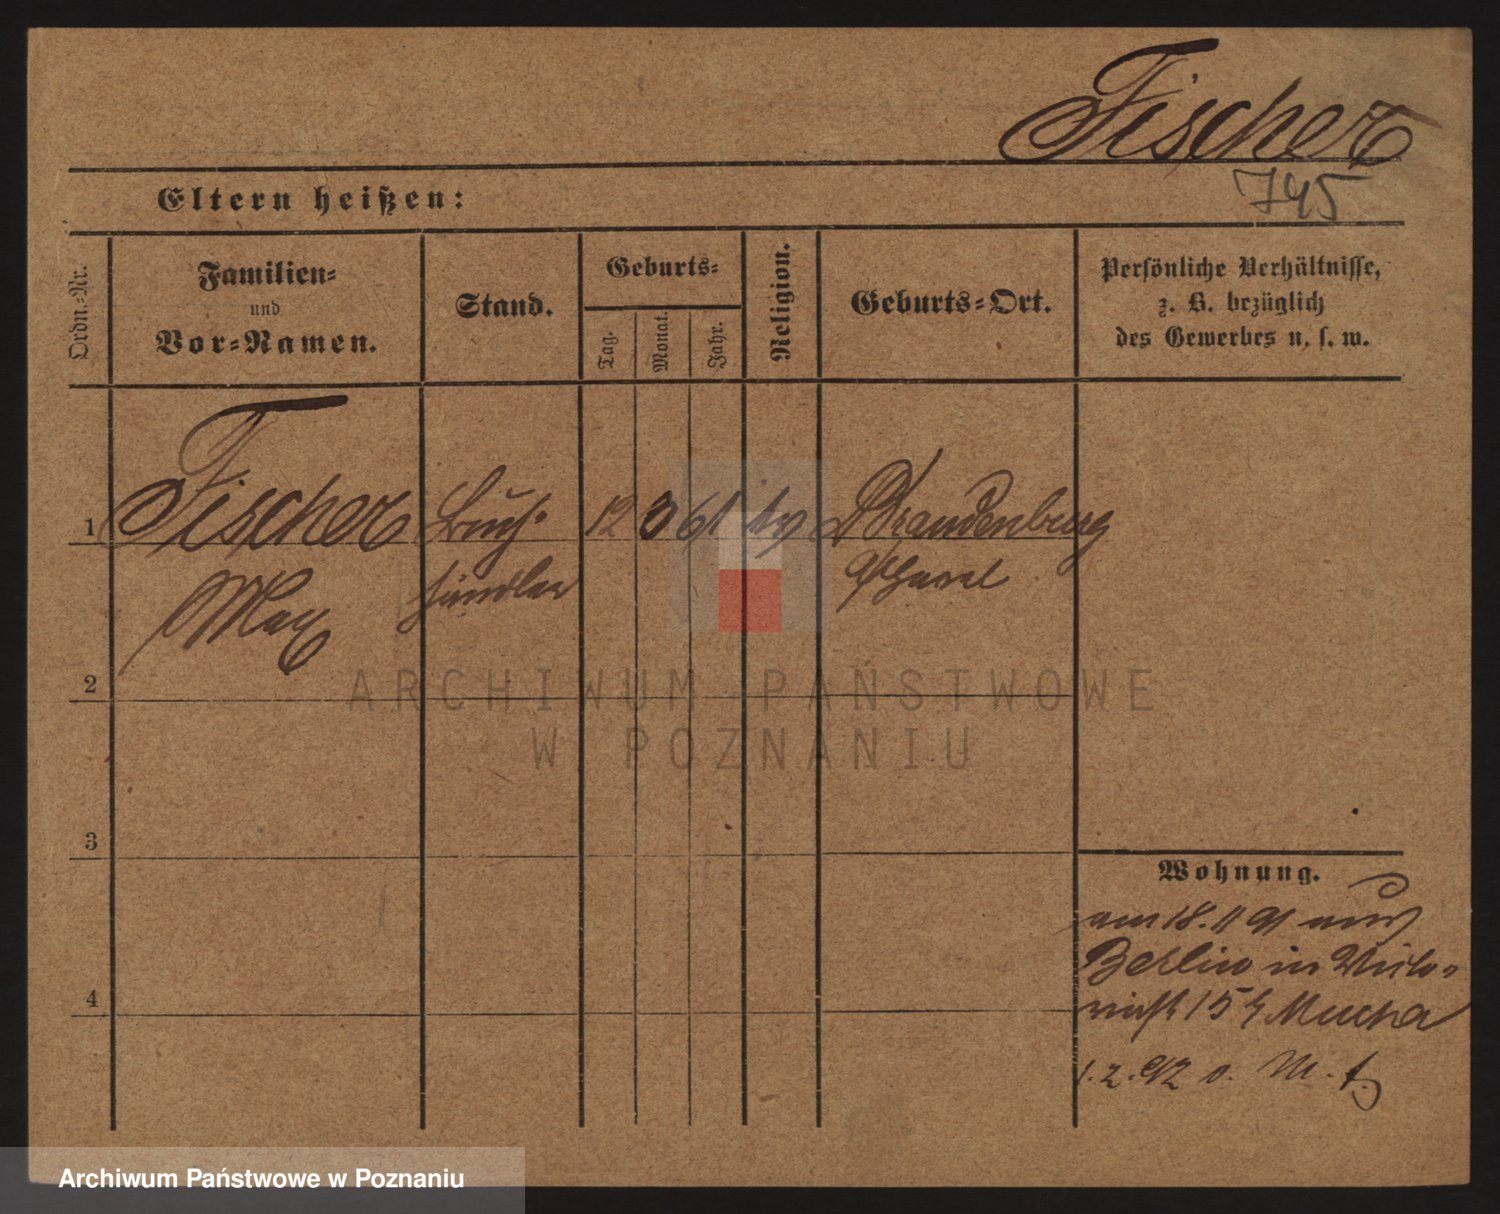 Fischer
745
Eltern heißen:
Ordn.-Nr.
Familien-
und
Vor-Namen.
Stand.
Geburts-
Tag.
Monat.
Jahr.
Religion.
Geburts-Ort.
Persönliche Verhältnisse,
z. B. bezüglich
des Gewerbes u. s. w.
1
Fischer
Max
Buch-
händler
12
3
61
ev
Brandenburg
a/Havel
2
3
4
Wohnung.
am 18. 11 91 aus
Berlin in
15 Mucha
1. 2. 92
ARCHIWUM PAŃSTWOWE
W POZNANIU
Archiwum Państwowe w Poznaniu